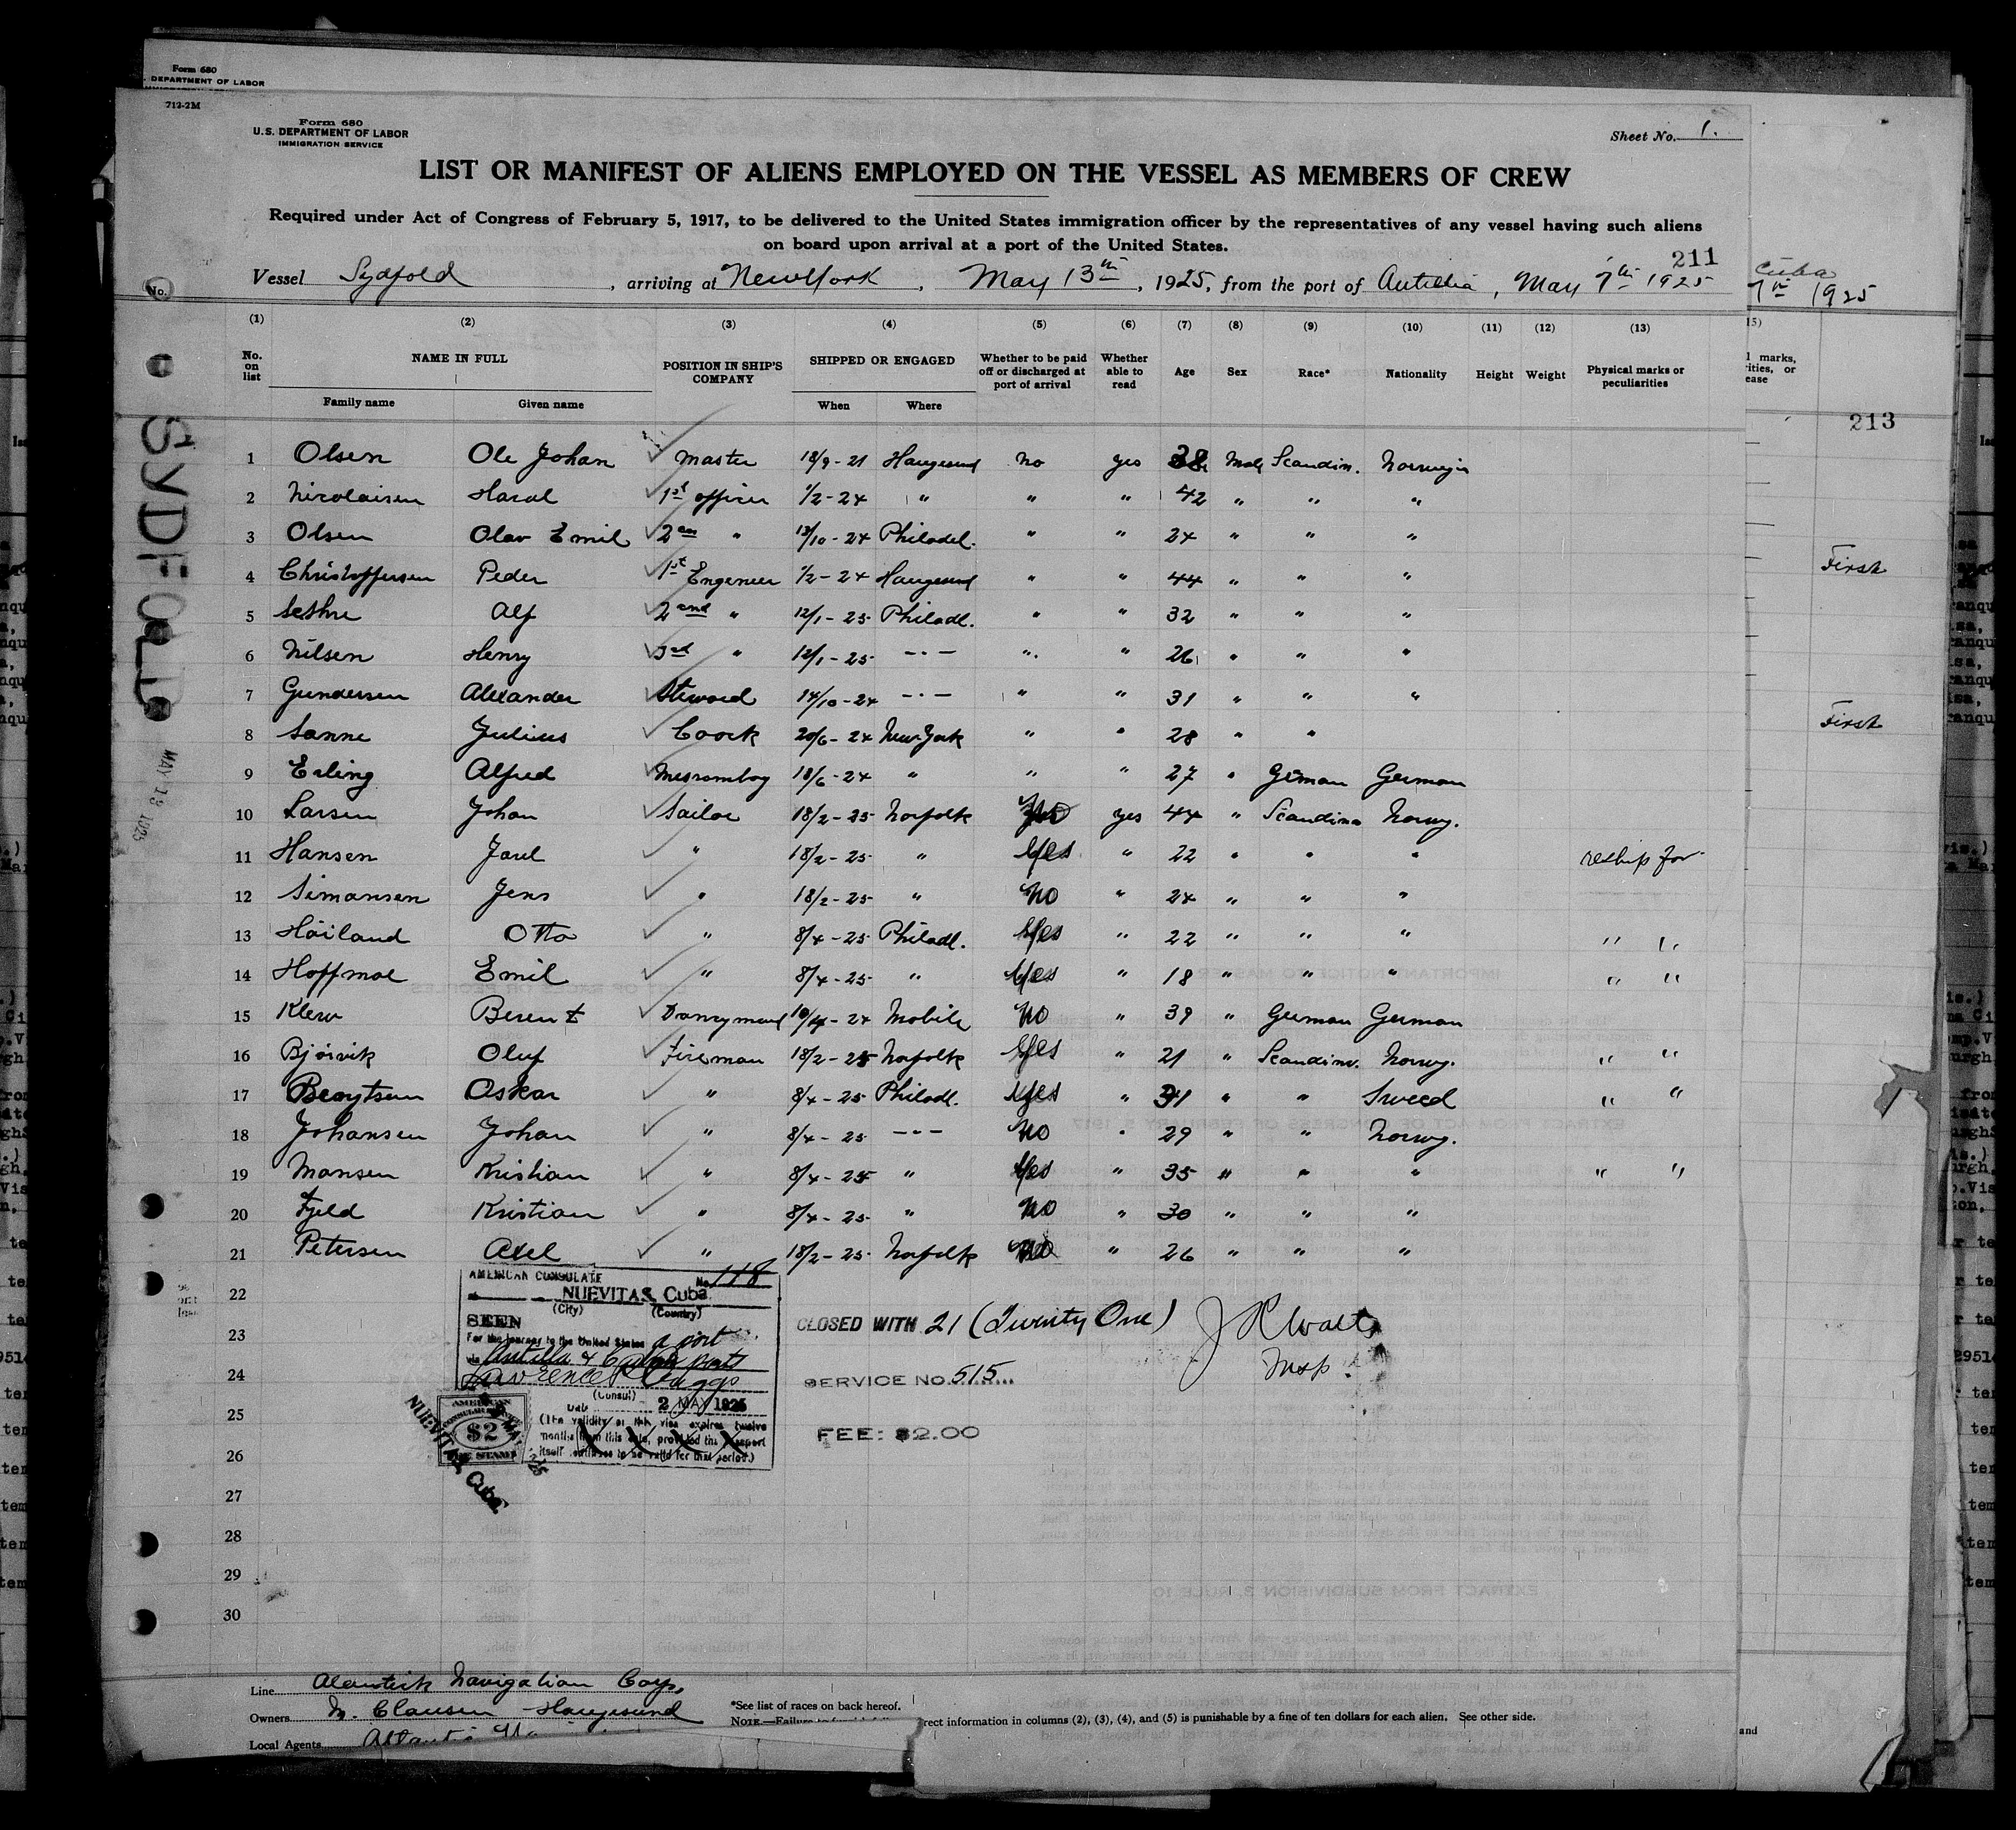 Form 680
. DEPARTMENT OF LABOR
713-2M
Form 680
U.S. DEPARTMENT OF LABOR
IMMIGRATION SERVICE
Sheet No. 1.
LIST OR MANIFEST OF ALIENS EMPLOYED ON THE VESSEL AS MEMBERS OF CREW
Required under Act of Congress of February 5, 1917, to be delivered to the United States immigration officer by the representatives of any vessel having such aliens
on board upon arrival at a port of the United States.
211
Vessel Sydfold, arriving at New York, May 13th, 1925, from the port of Antillia, May 7th 1925
Cuba
7th 1925
No.
(1) (2) (3) (4) (5) (6) (7) (8) (9) (10) (11) (12) (13)
No. on list NAME IN FULL POSITION IN SHIP'S COMPANY SHIPPED OR ENGAGED Whether to be paid off or discharged at port of arrival Whether able to read Age Sex Race* Nationality Height Weight Physical marks or peculiarities
Family name Given name When Where
213
1 Olsen Ole Johan Master 18/9-21 Haugesund no yes 38 Male Scandin. Norwegin
2 Nicolaisen Haral 1st officer 1/2-24 " " " 42 " " "
3 Olsen Olav Emil 2en " 13/10-24 Philadel. " " 24 " " "
4 Christoffersen Peder 1st Engeneer 1/2-24 Haugesund " " 44 " " "
First
5 Sethre Alf 2and " 12/1-25 Philadl. " " 32 " " "
6 Nilsen Henry 3rd " 12/1-25 -"- " " 26 " " "
7 Gundersen Alexander Steward 14/10-24 -"- " " 31 " " "
First
8 Sanne Julius Coock 20/6-24 New York " " 28 " "
9 Erling Alfred Messromboy 18/6-24 " " " 27 " German German
10 Larsen Johan Sailor 18/2-25 Norfolk yes 44 " Scandina Norwg.
11 Hansen Jarl " 18/2-25 " Yes " 22 " " " reship for
12 Simonsen Jens " 18/2-25 " No " 24 " " "
13 Hailand Otto " 8/4-25 Philadl. Yes " 22 " " " " "
14 Hoffmoe Emil " 8/4-25 " Yes " 18 " " " " "
15 Klew Berent Donzymand 10/4-24 Mobile No " 39 " German German
16 Bjørvik Oluf Fireman 18/2-25 Norfolk Yes " 21 " Scandinv. Norwg. " "
17 Bengtsen Oskar " 8/4-25 Philadl. Yes " 31 " " Sweed " "
18 Johansen Johan " 8/4-25 -"- No " 29 " " Norwg.
19 Monsen Kristian " 8/4-25 " Yes " 35 " " " " "
20 Fjeld Kristian " 8/4-25 " No " 30 " " "
21 Petersen Axel " 18/2-25 Norfolk No " 26 " " "
22
23
24
25
26
27
28
29
30
SYDFOLD
MAY 13 1925
AMERICAN CONSULATE
No. 118
NUEVITAS, Cuba.
(City) (Country)
SEEN
For the journey to the United States a port
via Antilla & Cuban ports
(Consul)
Date 2 MAY 1925
(The validity of this visa expires twelve
months from this date, provided the passport
itself continues to be valid for that period.)
AMERICAN
$2
FEE STAMP
NUEVITAS, Cuba.
CLOSED WITH 21 (Twenty One)
Insp.
SERVICE NO. 515
FEE: $2.00
Line Atlantick Navigation Corp.
Owners M. Clausen Haugesund
Local Agents
*See list of races on back hereof.
NOTE.—Failure to rect information in columns (2), (3), (4), and (5) is punishable by a fine of ten dollars for each alien. See other side.
and